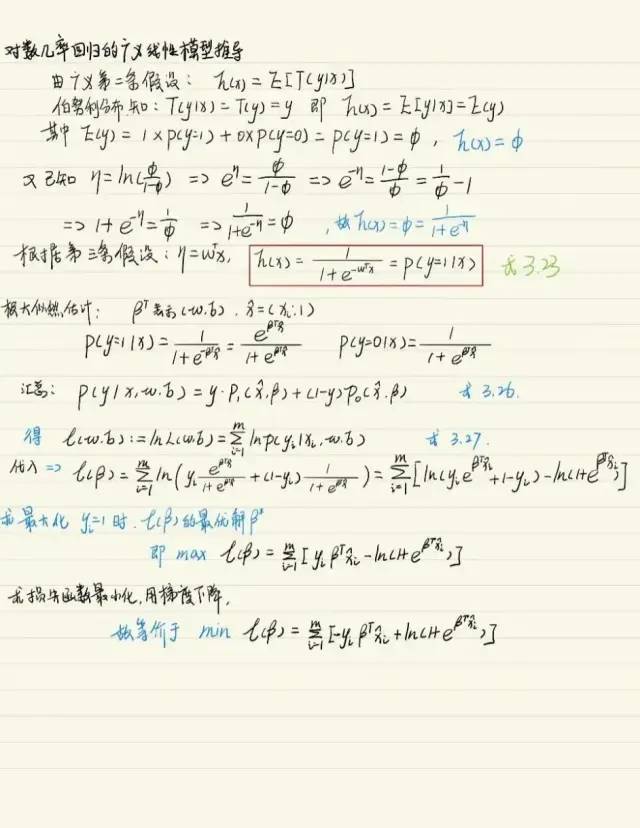 对数几率回归的广义线性模型推导
由广义第二条假设: h(x) = E[T(y|x)]
伯努利分布知: T(y|x) = T(y) = y 即 h(x) = E[y|x] = E(y)
其中 E(y) = 1×p(y=1) + 0×p(y=0) = p(y=1) = φ , h(x) = φ
又已知 η = ln(φ/(1-φ)) => e^η = φ/(1-φ) => e^{-η} = (1-φ)/φ = 1/φ - 1
=> 1+e^{-η} = 1/φ => 1/(1+e^{-η}) = φ , 故 h(x) = φ = 1/(1+e^{-η})
根据第三条假设: η = w^T x, h(x) = 1/(1+e^{-w^T x}) = p(y=1|x) 式 3.23
极大似然估计: β^T 表示 (w.b) . x̂ = (x;1)
p(y=1|x) = 1/(1+e^{-β^T x̂}) = e^{β^T x̂}/(1+e^{β^T x̂}) p(y=0|x) = 1/(1+e^{β^T x̂})
汇总: p(y|x,w.b) = y·p₁(x̂,β) + (1-y)p₀(x̂.β) 式 3.26.
得 ℓ(w.b) := ln L(w.b) = Σ_{i=1}^{m} ln p(y_i|x_i,w.b) 式 3.27.
代入 => ℓ(β) = Σ_{i=1}^{m} ln(y_i e^{β^T x̂}/(1+e^{β^T x̂}) + (1-y_i) 1/(1+e^{β^T x̂})) = Σ_{i=1}^{m} [ln(y_i e^{β^T x̂_i} + 1-y_i) - ln(1+e^{β^T x̂_i})]
求最大化 y_i=1 时. ℓ(β) 的最优解 β*
即 max ℓ(β) = Σ_{i=1}^{m} [y_i β^T x̂_i - ln(1+e^{β^T x̂_i})]
求损失函数最小化, 用梯度下降,
故等价于 min ℓ(β) = Σ_{i=1}^{m} [-y_i β^T x̂_i + ln(1+e^{β^T x̂_i})]